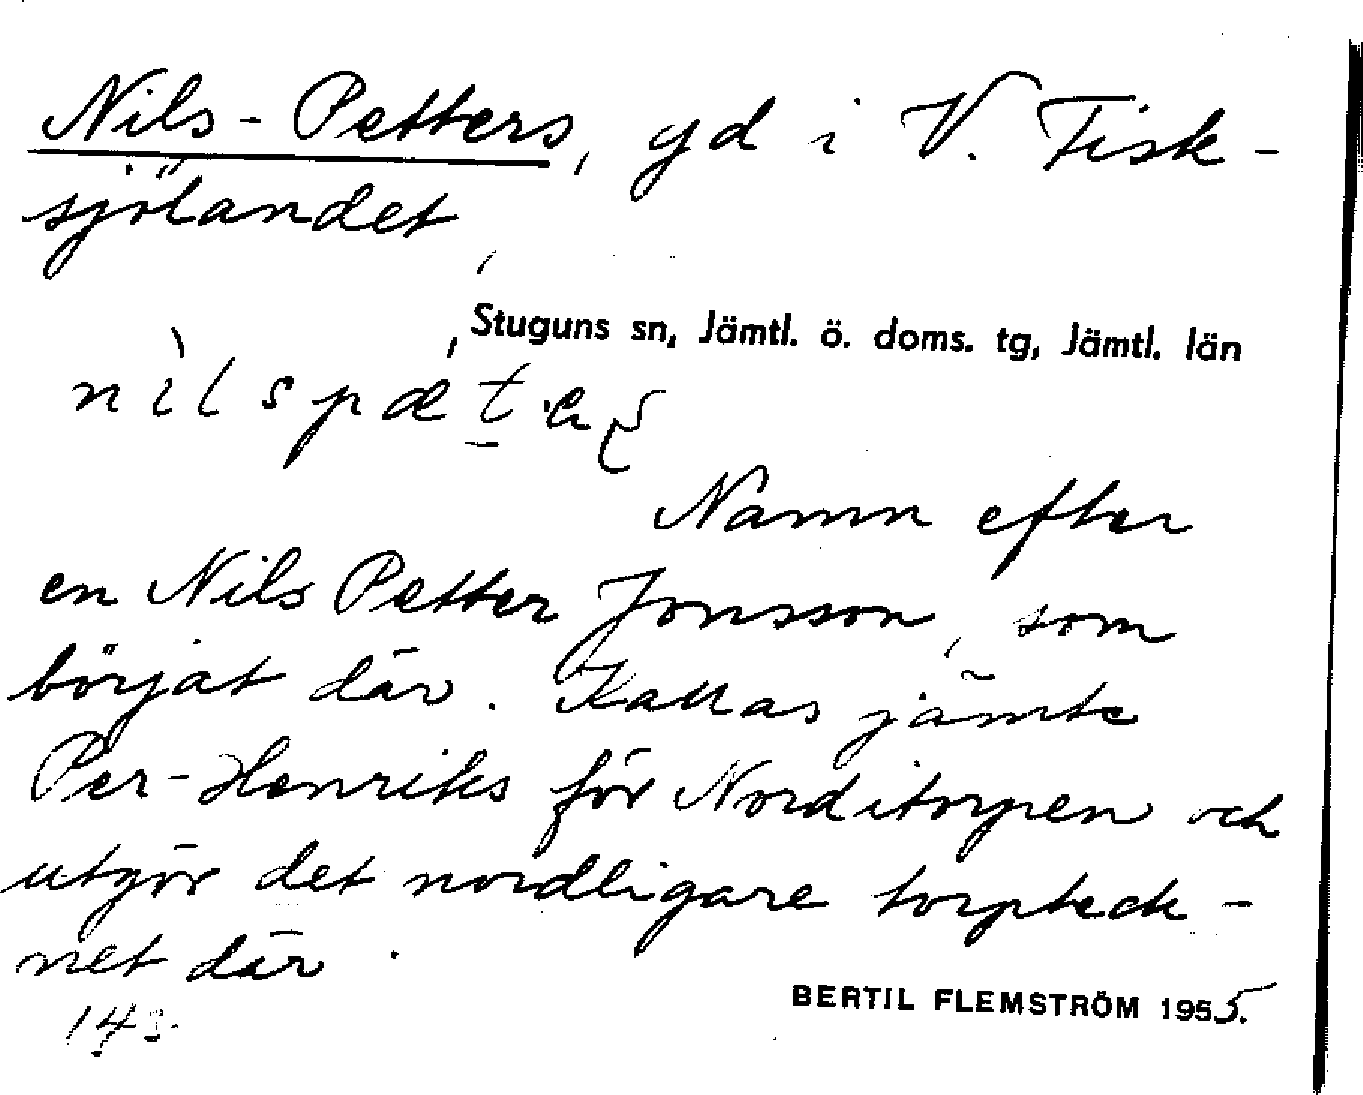 Nils-Petters, gd i V. Fisk-
sjölandet,
Stuguns sn, Jämtl. ö. doms. tg, Jämtl. län
Namn efter
en Nils Petter Jonsson, som
börjat där. Kallas jämte
Per-Henriks för Norditorpen och
utgör det nordligare torpteck-
net där.
BERTIL FLEMSTRÖM 1955.